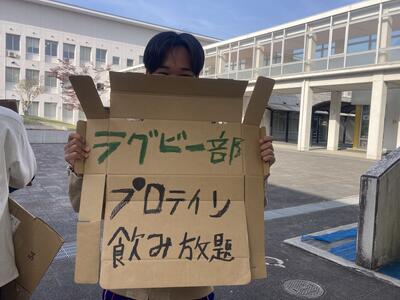 ラグビー部
プロテイン
飲み放題